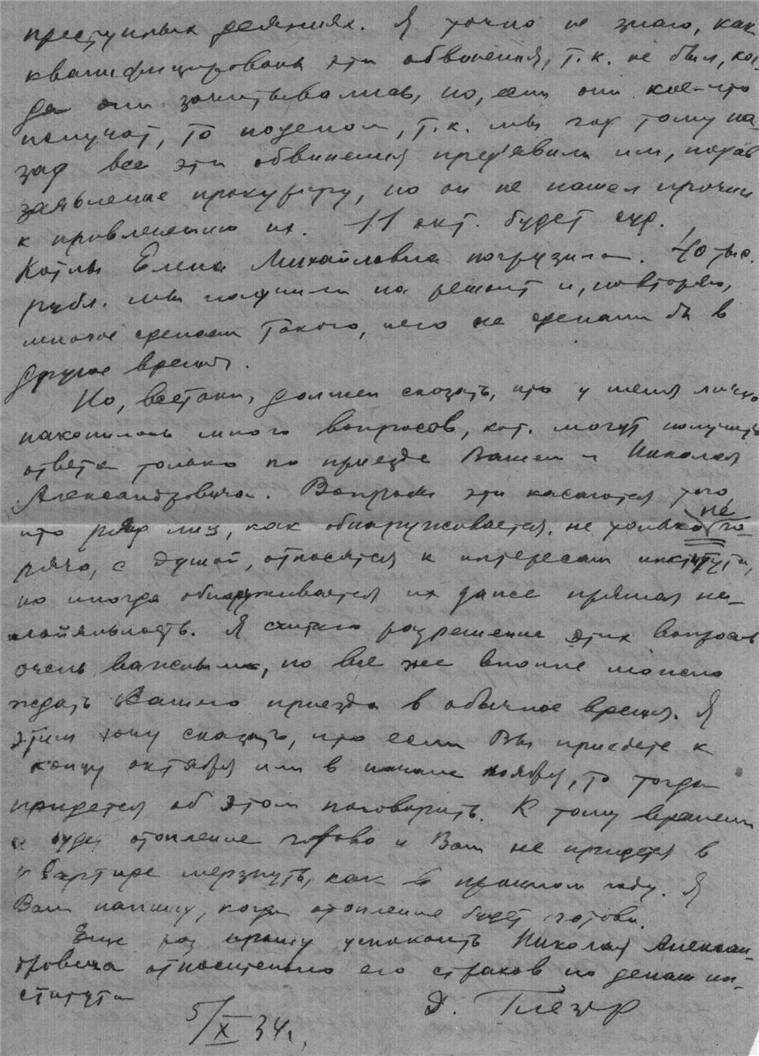 преступных деяниях. Я точно не знаю, как
квалифицированы эти обвинения, т.к. не был, ког-
да они зачитывались, но, если они кое-что
получат, то поделом, т.к. мы год тому на-
зад все эти обвинения предъявили им, подав
заявление прокурору, но он не нашел причин
к привлечению их. 11 окт. будет суд.
Котлы Елена Михайловна погрузила. 40 тыс.
рубл. мы получили на ремонт и, повторяю,
многое сделаем такого, чего не сделали бы в
другое время.
Но, всетаки, должен сказать, что у меня лично
накопилось много вопросов, кот. могут получить
ответа только по приезде Вашем и Николая
Александровича. Вопросы эти касаются того
что ряд лиц, как обнаруживается, не только не го-
рячо, с душой, относятся к интересам института,
но иногда обнаруживается их даже прямая не-
лояльность. Я считаю разрешение этих вопросов
очень важным, но все же вполне можно
ждать Вашего приезда в обычное время. Я
этим хочу сказать, что если Вы приедете к
концу октября или в начале ноября, то тогда
придется об этом поговорить. К тому времени
и будет отопление готово и Вам не придется в
квартире мерзнуть, как в прошлом году. Я
Вам напишу, когда отопление будет готово.
Еще раз прошу успокоить Николая Алексан-
дровича относительно его страхов по делам ин-
ститута
Д. Глезер
5/X 34 г.